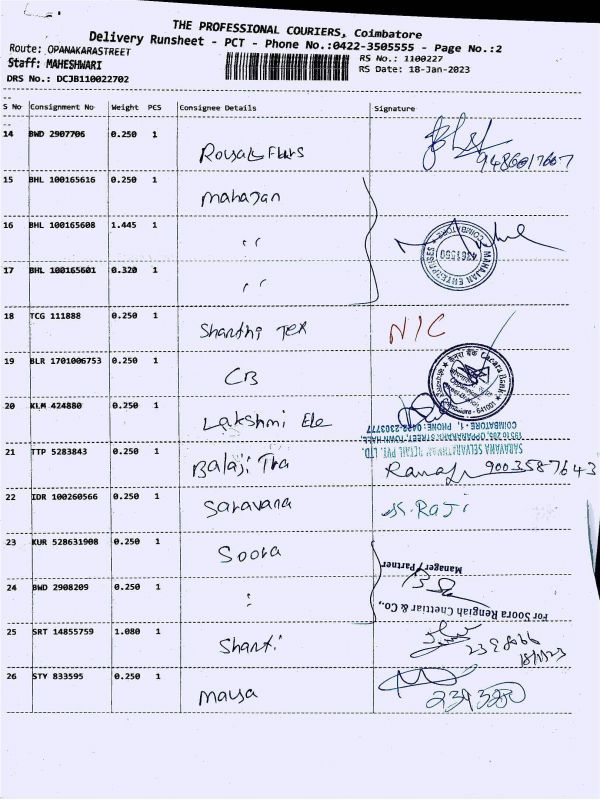 THE PROFESSIONAL COURIERS, Coimbatore
Delivery Runsheet - PCT - Phone No.:0422-3505555 - Page No.:2
Route: OPANAKARASTREET
RS No.: 1100227
Staff: MAHESHWARI
RS Date: 18-Jan-2023
DRS No.: DCJB110022702
S No Consignment No Weight PCS Consignee Details Signature
14 BWD 2907706 0.250 1
9486017607
15 BHL 100165616 0.250 1 Mahajan
16 BHL 100165608 1.445 1 "
MAHAJAN ENTERPRISES
COIMBATORE
4361550
17 BHL 100165601 0.320 1 "
18 TCG 111888 0.250 1 Shanthi Tex NIC
19 BLR 1701006753 0.250 1 CB
केनरा बैंक Canara Bank
20 KLM 424880 0.250 1 Lakshmi Ele
SARAVANA SELVARATHNAM RETAIL PVT. LTD.
195 to 205, OPPANAKARA STREET, TOWN HALL,
COIMBATORE - 1. PHONE: 0422-2303777
21 TTP 5283843 0.250 1 Balaji Tra 9003587643
22 IDR 100260566 0.250 1 Saravana K. RAJI
23 KUR 528631908 0.250 1 Soora
For Soora Rengiah Chettiar & Co.,
Manager/Partner
24 BWD 2908209 0.250 1 "
25 SRT 14855759 1.080 1 Shanti
18/1/23
26 STY 833595 0.250 1 Maya